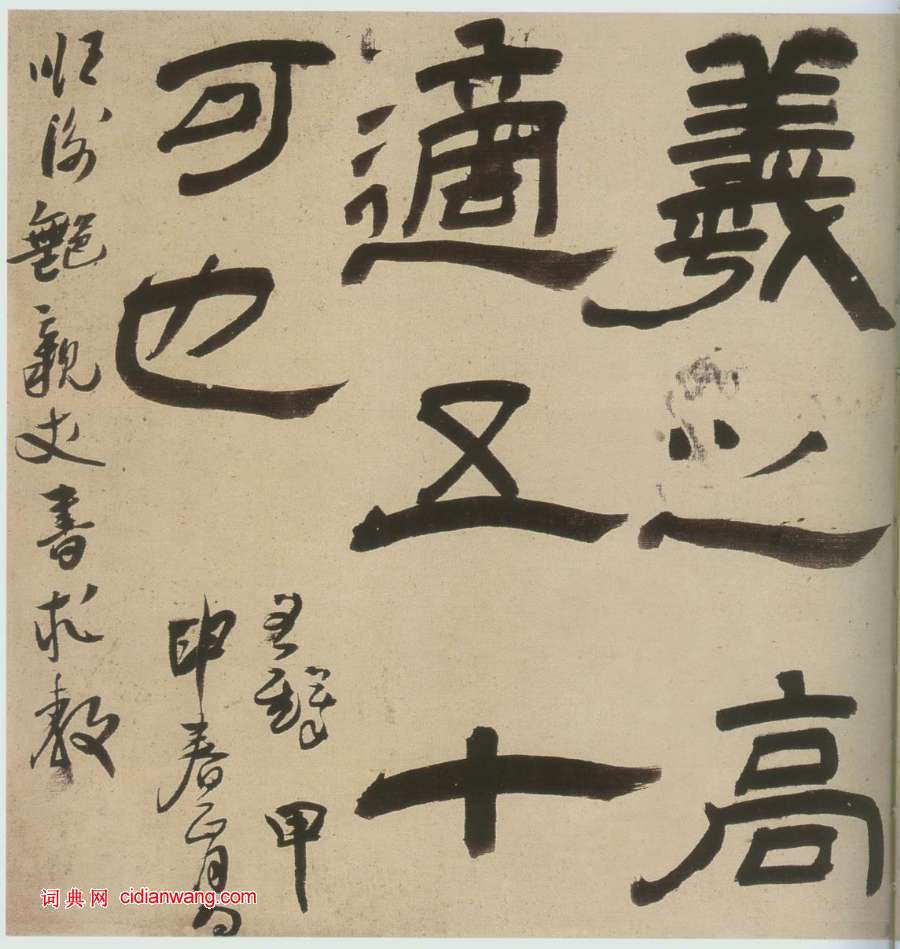 羲之高
適五十
可也
王鐸甲
申春正月為
親丈書求教
词典网 cidianwang.com